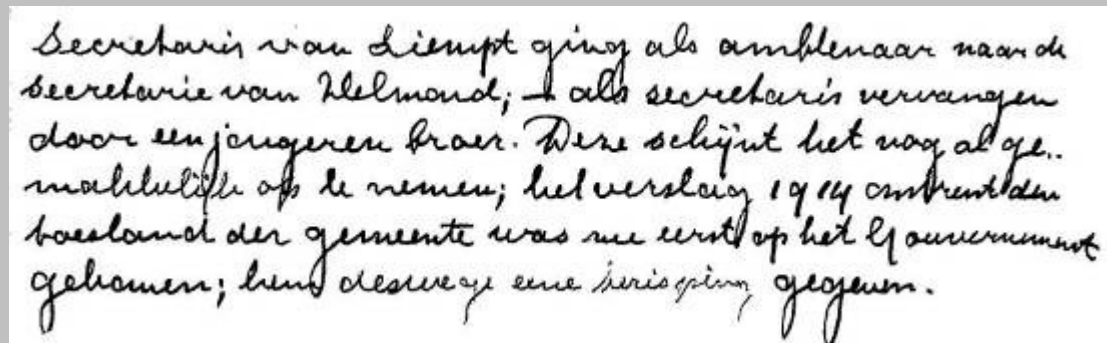 Secretaris van Liempt ging als ambtenaar naar de
secretarie van Helmond; – als secretaris vervangen
door een jongeren broer. Deze schijnt het nog al ge..
makkelijk op te nemen; het verslag 1914 omtrent den
toestand der gemeente was nu eerst op het Gouvernement
gekomen; hem deswege eene berisping gegeven.